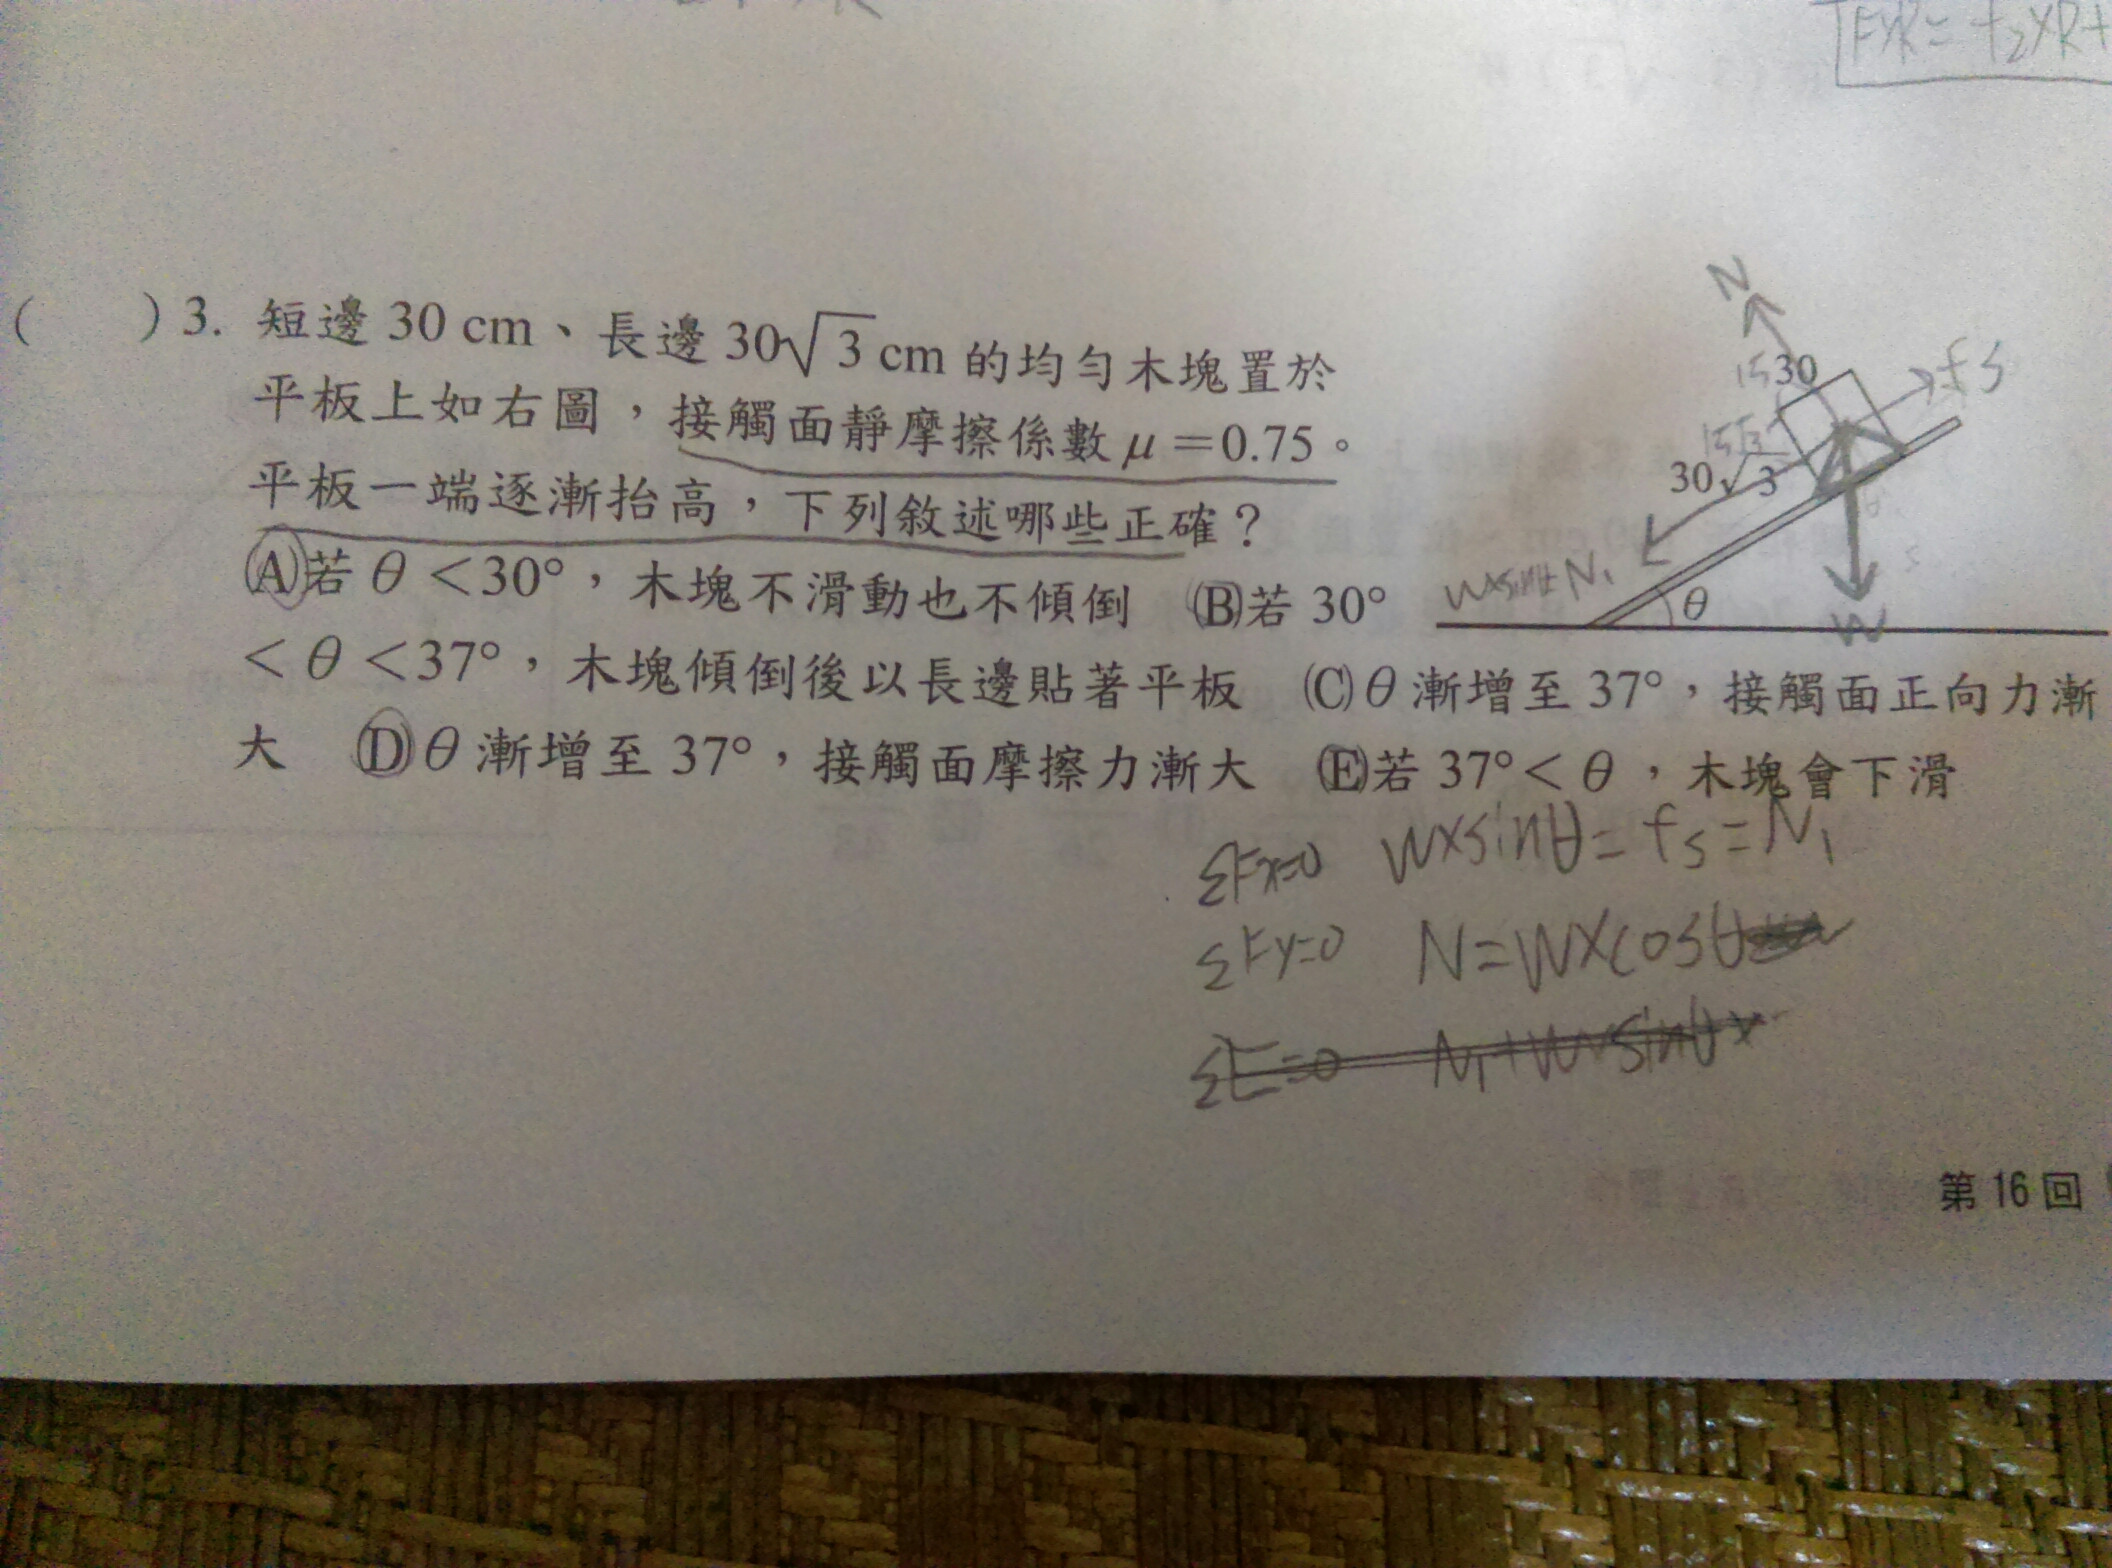 FxR= f2xR+
( )3. 短邊 30 cm、長邊 30√3 cm 的均勻木塊置於
平板上如右圖，接觸面靜摩擦係數 μ＝0.75。
平板一端逐漸抬高，下列敘述哪些正確？
(A)若 θ＜30°，木塊不滑動也不傾倒 (B)若 30°
＜θ＜37°，木塊傾倒後以長邊貼著平板 (C)θ 漸增至 37°，接觸面正向力漸
大 (D)θ 漸增至 37°，接觸面摩擦力漸大 (E)若 37°＜θ，木塊會下滑
N
fs
15 30
15√3
30√3
Wxsinθ N1
θ
W
ΣFx=0 Wxsinθ= fs=N1
ΣFy=0 N=Wxcosθ
第 16 回